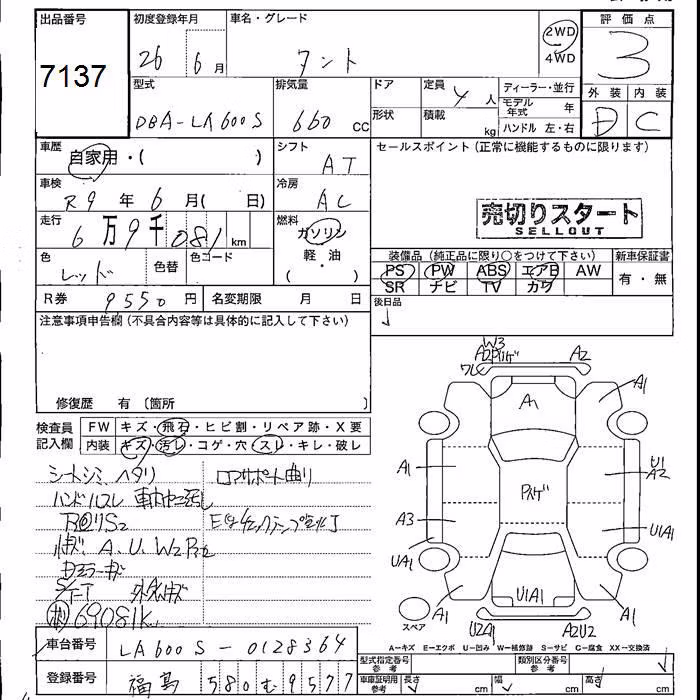 出品番号 初度登録年月 車名・グレード 評価点
7137 26年6月 タント 2WD 4WD 3
型式 排気量 ドア 定員 ディーラー・並行 外装 内装
DBA-LA600S 660cc 形状 積載 kg 4人 モデル年式 年 ハンドル 左・右 D C
車歴 自家用・( ) シフト AT セールスポイント (正常に機能するものに限ります)
車検 R9年6月( 日) 冷房 AC
売切りスタート
SELLOUT
走行 6万9千081km 燃料 ガソリン 軽・油 ( )
色 レッド 色替 色コード
装備品 (純正品に限り○をつけて下さい) 新車保証書
PS PW ABS エアB AW 有・無
SR ナビ TV カワ
R券 9550円 名変期限 月 日 後日品
注意事項申告欄 (不具合内容等は具体的に記入して下さい)
修復歴 有 〔箇所 〕
検査員記入欄 FW キズ・飛石・ヒビ割・リペア跡・X要
内装 キズ・汚レ・コゲ・穴・スレ・キレ・破レ
シートシミ、ヘタリ ロアサポート曲リ
ハンドルスレ 車内中汚レ
小キズ、A.U.W2
69081K
W3
A2 A2
A1 A1
A1 U1 A2
A3 U1A1
UA1 A1 U1A1 A1
U2A1 A2U2
スペア
A=キズ E=エクボ U=凹み W=補修跡 S=サビ C=腐食 XX=交換済
車台番号 LA600S-0128364
登録番号 福島 580 む 9577
型式指定番号 参考 類別区分番号 参考
車庫証明用 参考 長さ cm 幅 cm 高さ cm